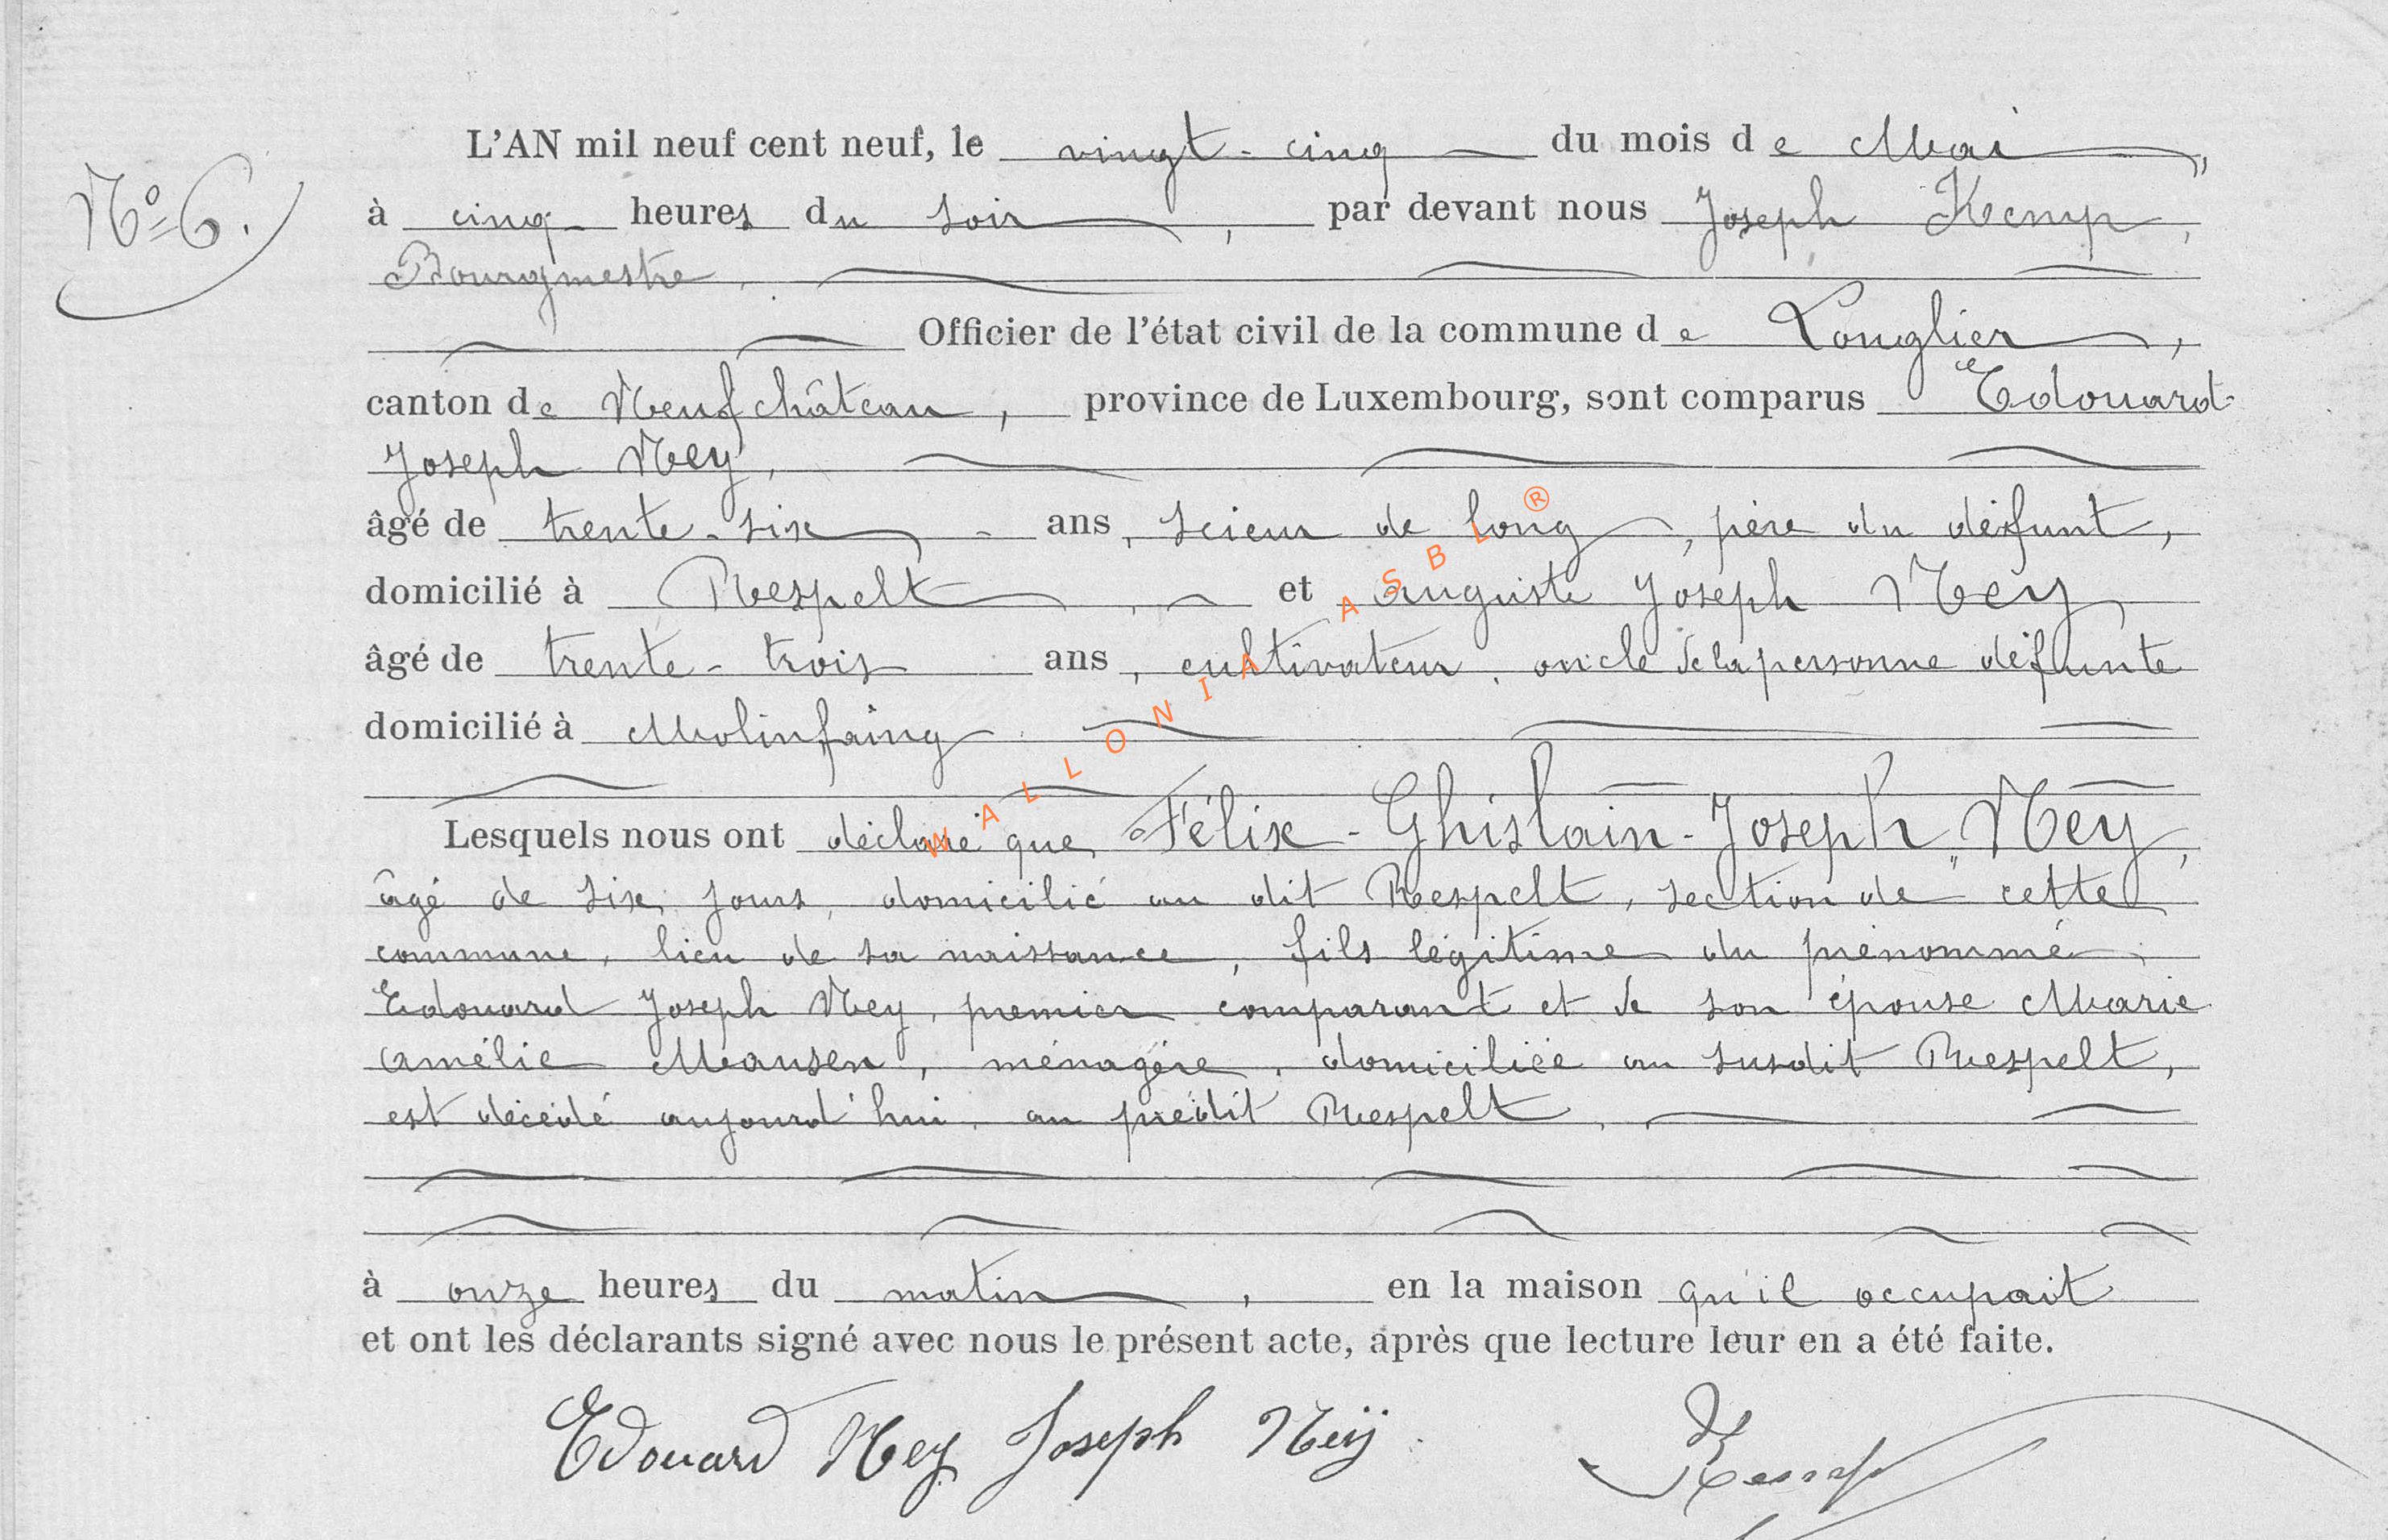 L'AN mil neuf cent neuf, le vingt-cinq du mois de Mai,
N° 6.
à cinq heures du soir, par devant nous Joseph Kemp,
Bourgmestre,
Officier de l'état civil de la commune de Longlier,
canton de Neufchâteau, province de Luxembourg, sont comparus Edouard
Joseph Ney,
âgé de trente-six ans, scieur de long, père du défunt,
domicilié à Respelt, et Auguste Joseph Ney
âgé de trente-trois ans, cultivateur, oncle de la personne défunte
domicilié à Molinfaing
Lesquels nous ont déclaré que Félix-Ghislain-Joseph Ney,
âgé de six jours, domicilié au dit Respelt, section de cette
commune, lieu de sa naissance, fils légitime du prénommé
Edouard Joseph Ney, premier comparant et de son épouse Marie
Amélie Mausen, ménagère, domiciliée au susdit Respelt,
est décédé aujourd'hui, au prédit Respelt,
à onze heures du matin, en la maison qu'il occupait
et ont les déclarants signé avec nous le présent acte, après que lecture leur en a été faite.
Edouard Ney Joseph Neÿ Kemp
WALLONIA ASBL ®